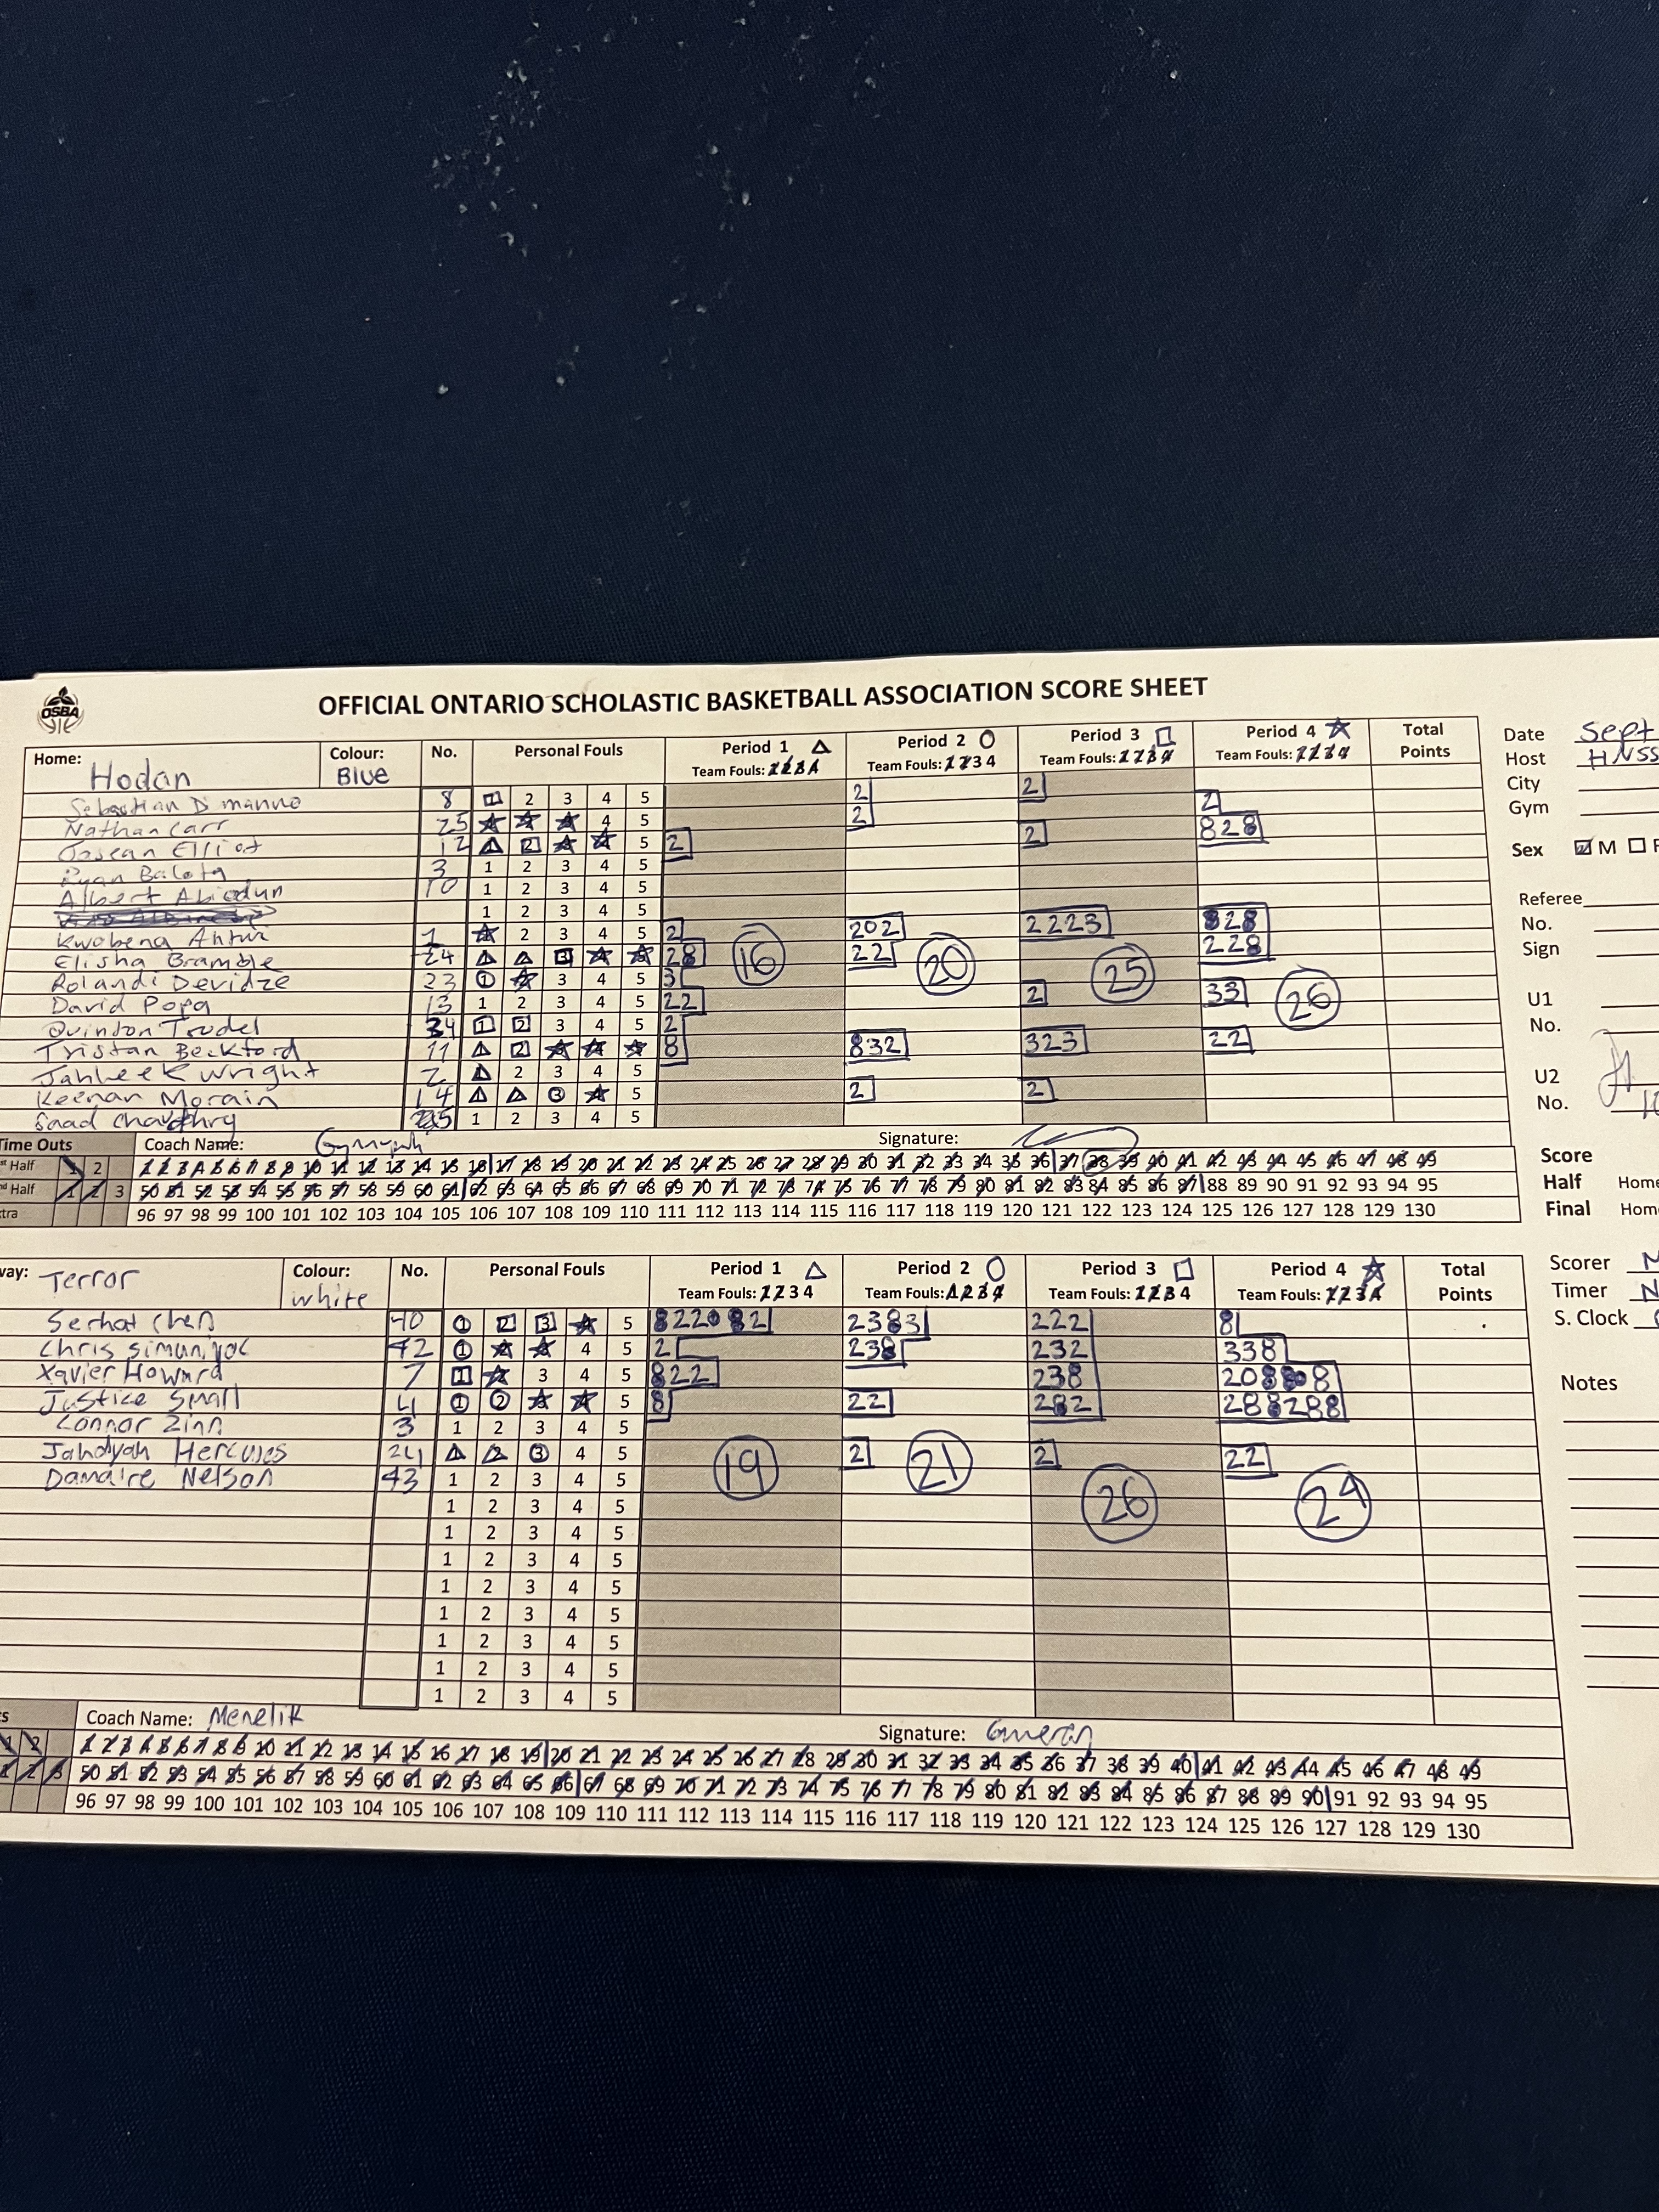 OSBA
OFFICIAL ONTARIO SCHOLASTIC BASKETBALL ASSOCIATION SCORE SHEET
Home: Hodan Colour: Blue No. Personal Fouls Period 1 Team Fouls: 1 2 3 4 Period 2 Team Fouls: 1 2 3 4 Period 3 Team Fouls: 1 2 3 4 Period 4 Team Fouls: 1 2 3 4 Total Points
Sebastian D manno 8 1 2 3 4 5 2 2
Nathan Carr 25 4 5 2 2
Josean Elliot 12 2 5 2 2 828
Ryan 3 1 2 3 4 5
Albert Abiodun 10 1 2 3 4 5
1 2 3 4 5
Kwobena Antwi 1 2 3 4 5 2 202 2223 828
Elisha Bramble 24 3 28 22 228
16 20 25 26
Rolandi Devidze 23 1 3 4 5 3
David Popa 13 1 2 3 4 5 22 2 33
Quinton Trudel 34 1 2 3 4 5 2
Tristan Beckford 11 2 8 832 323 22
Jahleek Wright 2 2 3 4 5
Keenan Morain 14 3 5 2 2
Saad Chaudhry 1 2 3 4 5
Time Outs Coach Name: Signature:
Half 1 2 1 2 3 4 5 6 7 8 9 10 11 12 13 14 15 16 17 18 19 20 21 22 23 24 25 26 27 28 29 30 31 32 33 34 35 36 37 38 39 40 41 42 43 44 45 46 47 48 49
Half 1 2 3 50 51 52 53 54 55 56 57 58 59 60 61 62 63 64 65 66 67 68 69 70 71 72 73 74 75 76 77 78 79 80 81 82 83 84 85 86 87 88 89 90 91 92 93 94 95
96 97 98 99 100 101 102 103 104 105 106 107 108 109 110 111 112 113 114 115 116 117 118 119 120 121 122 123 124 125 126 127 128 129 130
Terror Colour: white No. Personal Fouls Period 1 Team Fouls: 1 2 3 4 Period 2 Team Fouls: 1 2 3 4 Period 3 Team Fouls: 1 2 3 4 Period 4 Team Fouls: 1 2 3 4 Total Points
Serhat Chen 40 1 2 3 5 2383 222 8
Chris 42 1 4 5 2 238 232 338
Xavier Howard 7 1 3 4 5 822 238
Justice Small 4 1 2 5 8 22 282 288288
Connor Zinn 3 1 2 3 4 5
Jahdyah Hercules 24 1 2 3 4 5 2 2 22
Damaire Nelson 43 1 2 3 4 5
19 21 26 24
1 2 3 4 5
1 2 3 4 5
1 2 3 4 5
1 2 3 4 5
1 2 3 4 5
1 2 3 4 5
1 2 3 4 5
1 2 3 4 5
Coach Name: Menelik Signature: Cameron
1 2 1 2 3 4 5 6 7 8 9 10 11 12 13 14 15 16 17 18 19 20 21 22 23 24 25 26 27 28 29 30 31 32 33 34 35 36 37 38 39 40 41 42 43 44 45 46 47 48 49
1 2 3 50 51 52 53 54 55 56 57 58 59 60 61 62 63 64 65 66 67 68 69 70 71 72 73 74 75 76 77 78 79 80 81 82 83 84 85 86 87 88 89 90 91 92 93 94 95
96 97 98 99 100 101 102 103 104 105 106 107 108 109 110 111 112 113 114 115 116 117 118 119 120 121 122 123 124 125 126 127 128 129 130
Date Sept
Host HNSS
City
Gym
Sex M
Referee
No.
Sign
U1
No.
U2
No.
Score
Half
Final
Scorer
Timer
S. Clock
Notes